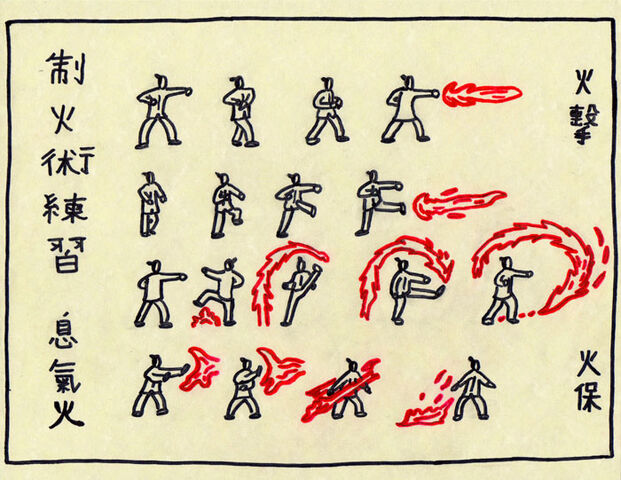 制火術練習
息氣火
火擊
火保